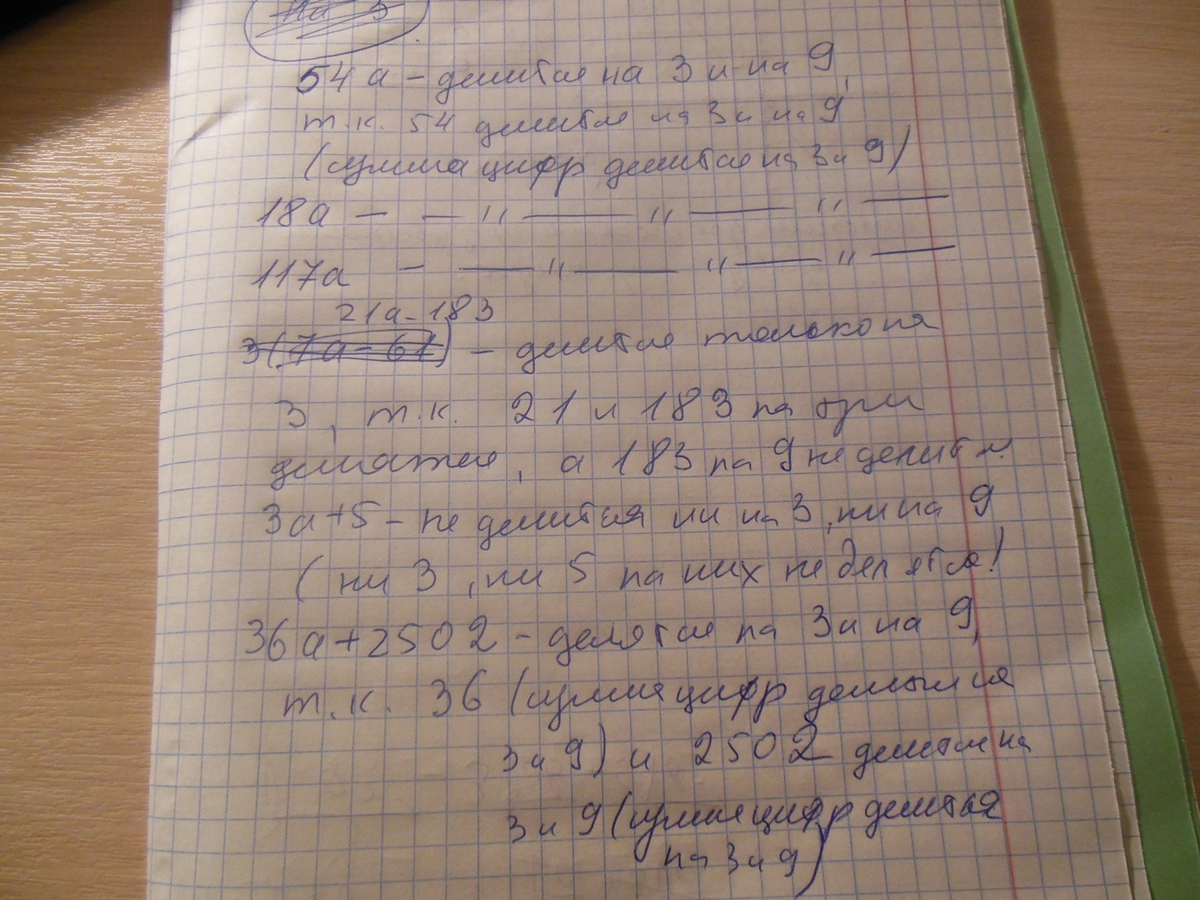 на 3
54а – делится на 3 и на 9,
т.к. 54 делится на 3 и на 9
(сумма цифр делится на 3 и 9)
18а — — " —— " —— " ——
117а — —— " —— " —— " ——
21а – 183
3(7а – 61) – делится только на
3, т.к. 21 и 183 на три
делятся, а 183 на 9 не делится.
3а+5 – не делится ни на 3, ни на 9
(ни 3, ни 5 на них не делятся!
36а+2502 – делятся на 3 и на 9,
т.к. 36 (сумма цифр делится на
3 и 9) и 2502 делится на
3 и 9 (сумма цифр делится
на 3 и 9)